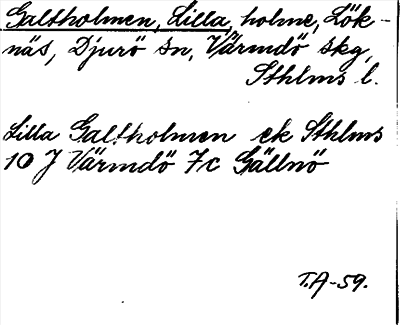 Galtholmen, Lilla, holme, Lök-
näs, Djurö sn, Värmdö skg,
Sthlms l.
Lilla Galtholmen ek Sthlms
10 J Värmdö 7c Gällnö
T.A-59.